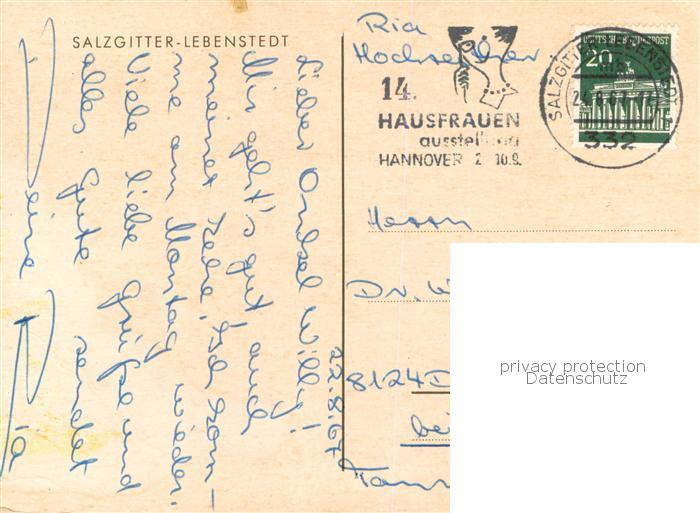 SALZGITTER-LEBENSTEDT
22.8.67
Lieber Onkel Willy!
Mir geht's gut, auch
meiner Zehe. Ich kom-
me am Montag wieder.
Viele liebe Grüße und
alles Gute sendet
Deine Ria
Ria
14.
HAUSFRAUEN
ausstellung
HANNOVER 2 10.9.
DEUTSCHE BUNDESPOST
20
SALZGITTER-LEBENSTEDT
332
Herrn
Dr. W
8124 D
bei
privacy protection
Datenschutz